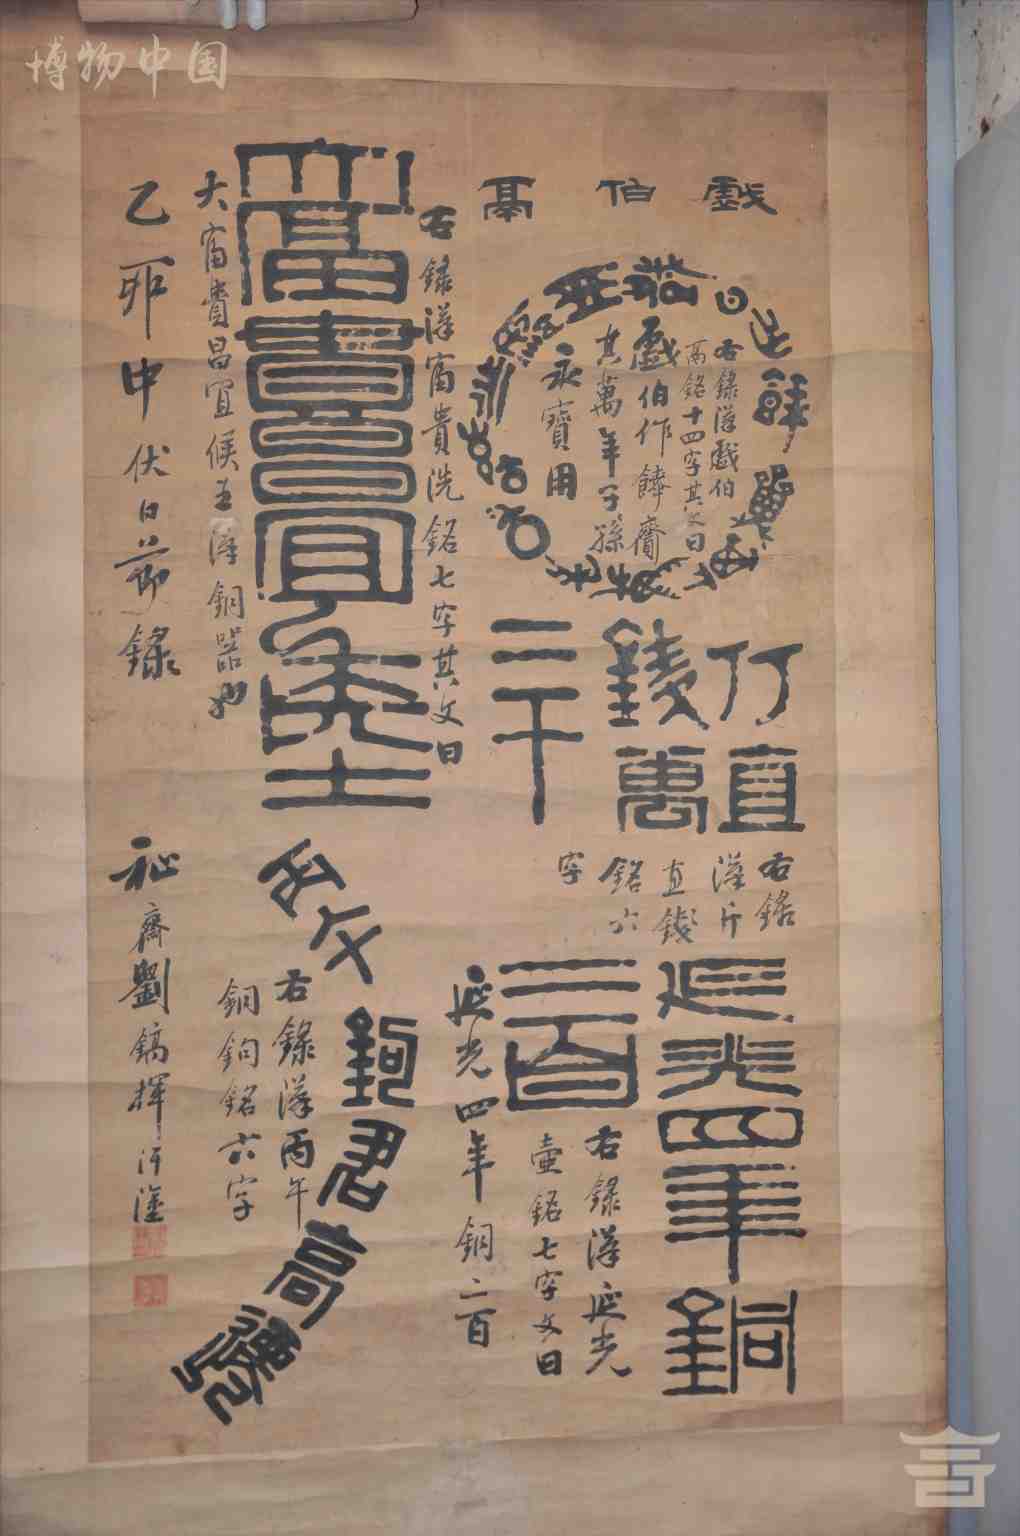 博物中国
戲伯鬲
右錄漢戲伯
鬲銘十四字其文曰
戲伯作饙齎
其萬年子孫
永寶用
斤直
錢萬
二千
右錄
漢斤
直錢
銘六
字
延光四年銅
二百
右錄漢延光
壺銘七字文曰
延光四年銅二百
右錄漢富貴洗銘七字其文曰
大富貴昌宜侯王
大富貴昌宜候王漢銅器也
丙午鉤君高遷
右錄漢丙午
銅鉤銘六字
乙卯中伏日節錄
祉齋劉鎬揮汗塗